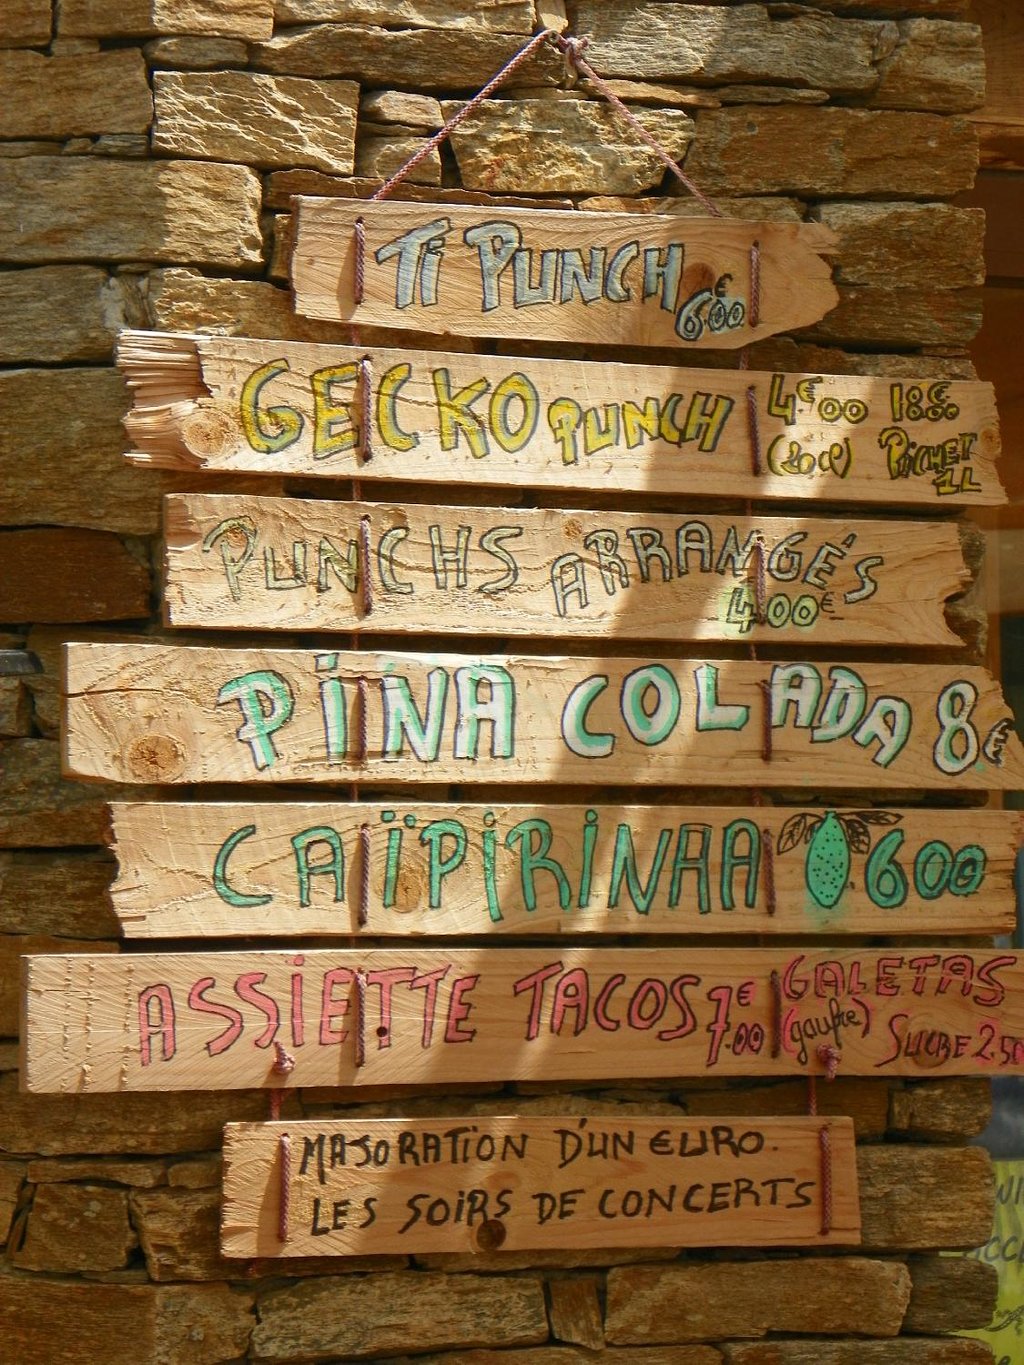 TI PUNCH 6€00
GECKO PUNCH 4€00 18€00
(20 cl) PICHET
1L
PUNCHS ARRANGÉS
4.00€
PINA COLADA 8€
CAÏPIRINAA 600
ASSIETTE TACOS 7€00 GALETAS
(gaufre) SUCRE 2.50
MAJORATION D'UN EURO.
LES SOIRS DE CONCERTS